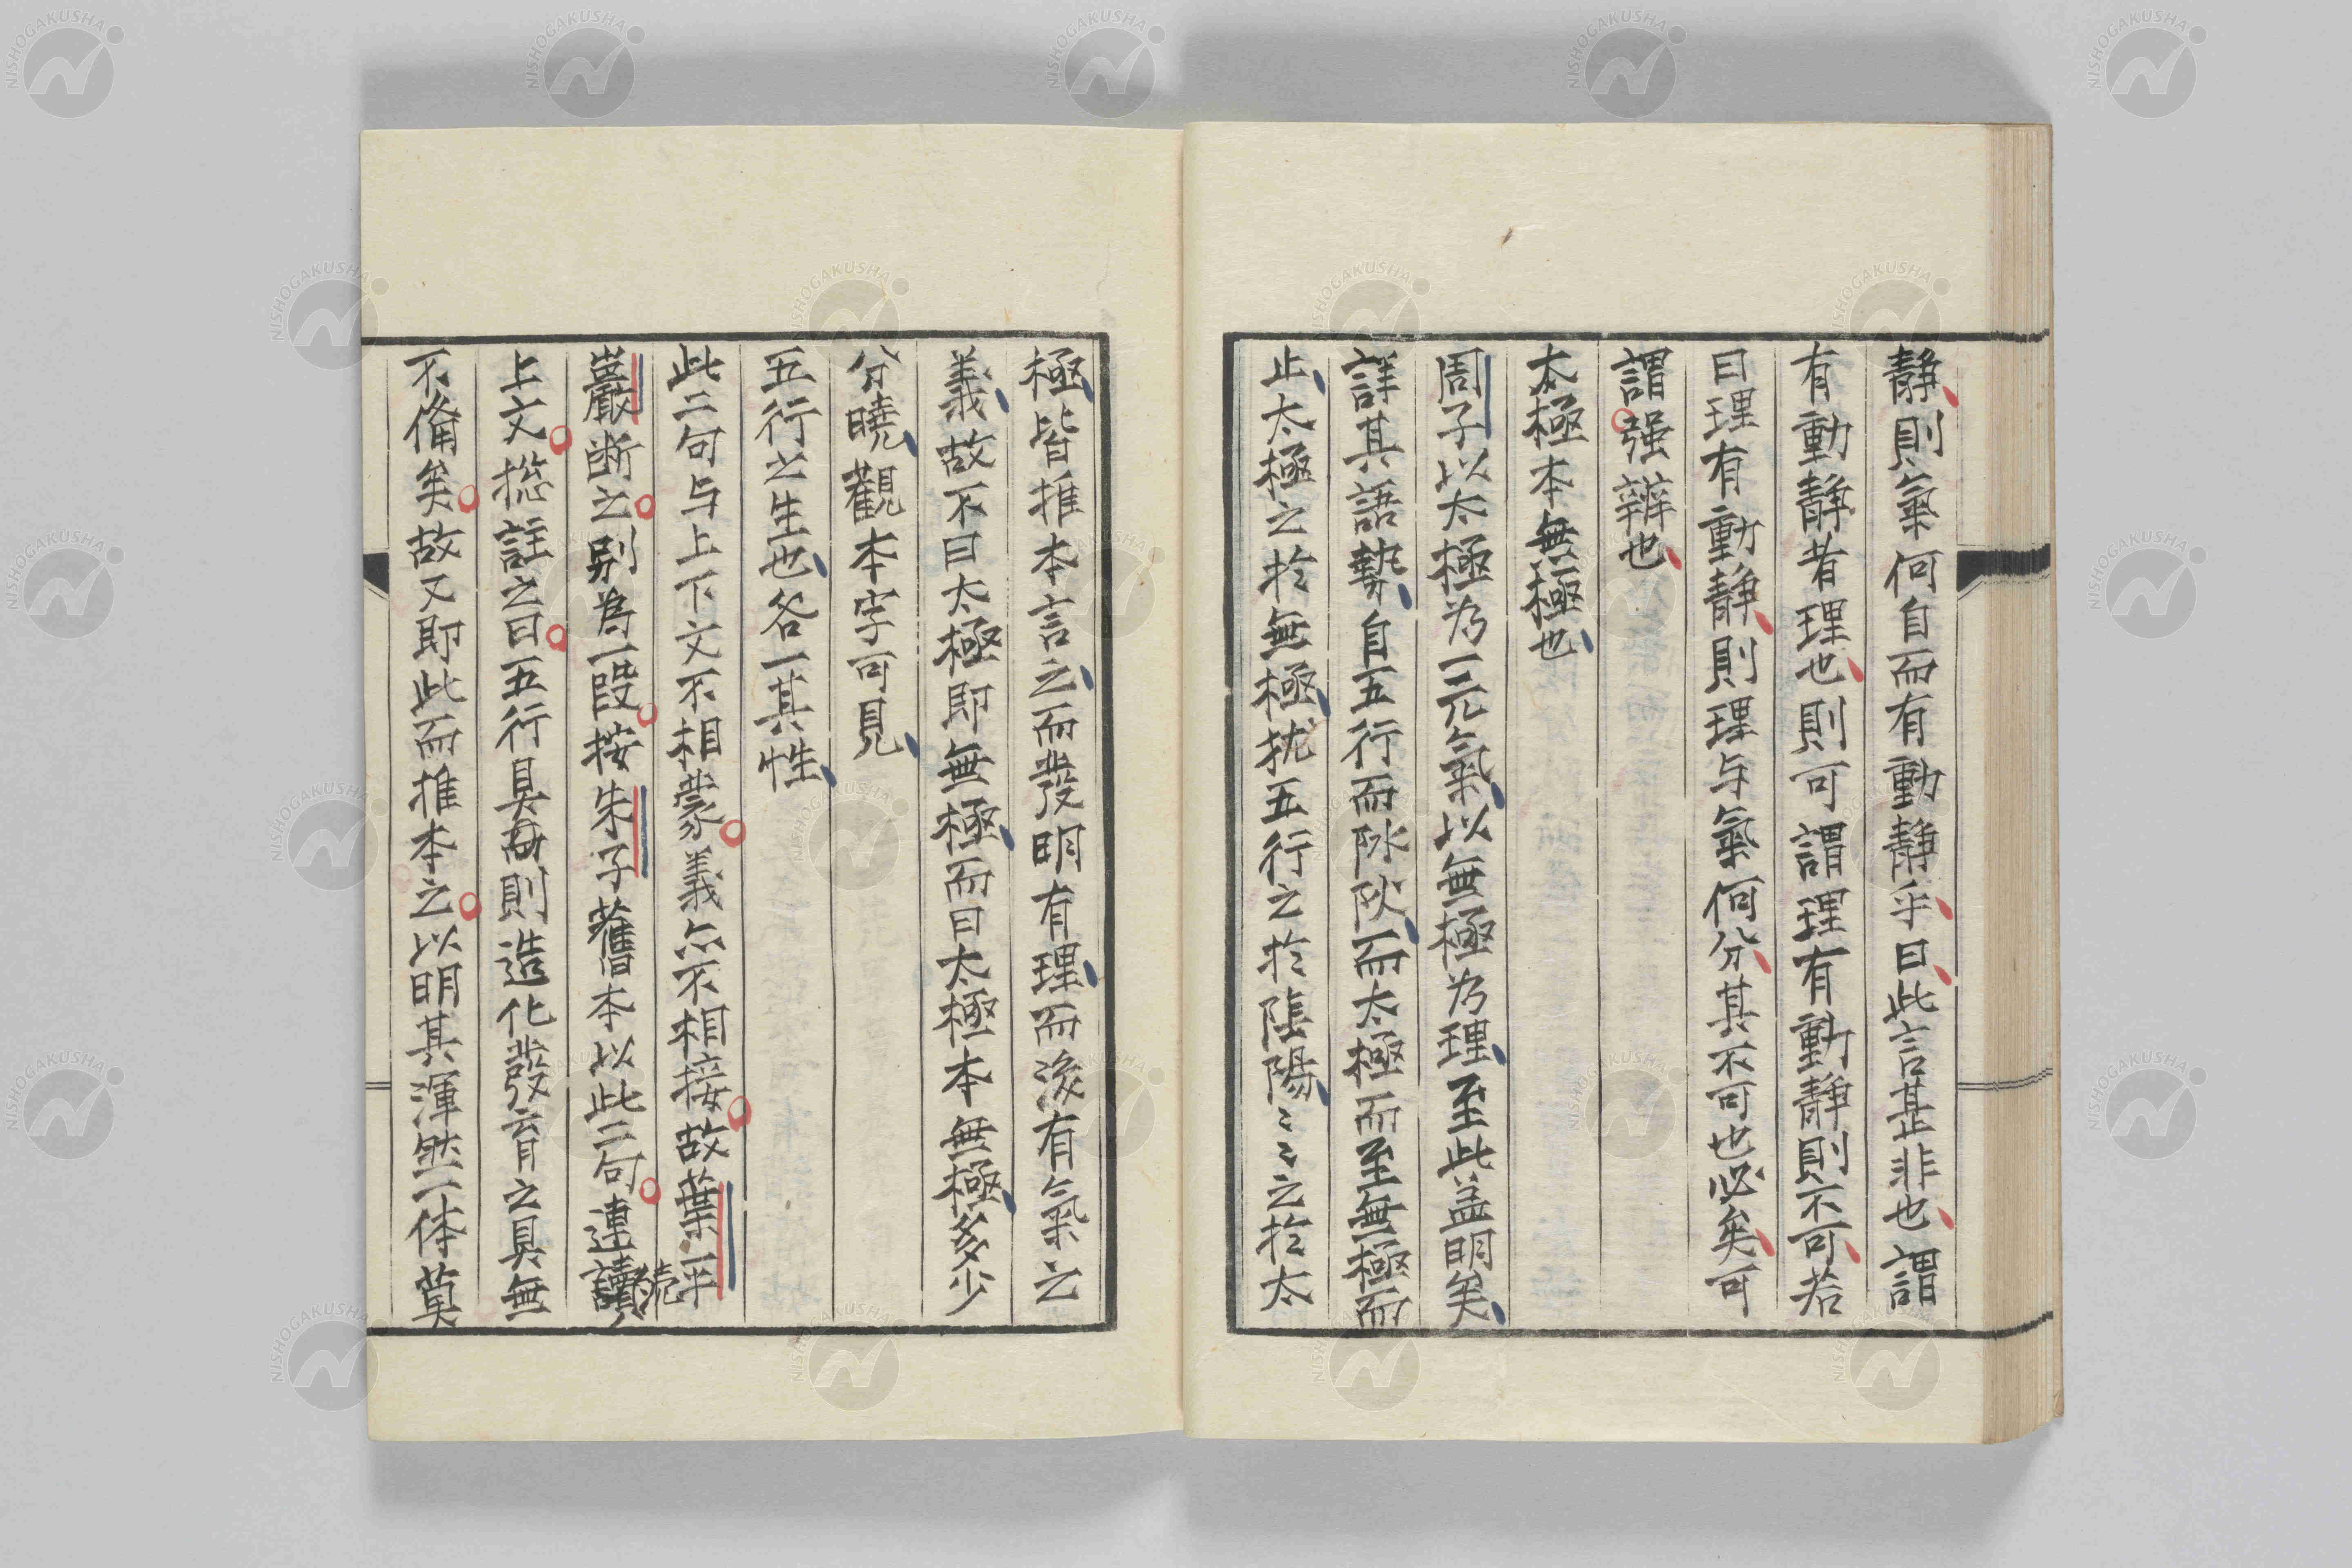 静則氣何自而有動静乎曰此言甚非也謂
有動静者理也則可謂理有動静則不可若
曰理有動静則理与氣何分其不可也必矣可
謂强辨也
太極本無極也
周子以太極為一元氣以無極為理至此盖明矣
詳其語勢自五行而阥阦而太極而至無極而
止太極之於無極犹五行之於陰陽〻〻之於太
極皆推本言之而發明有理而後有氣之
義故不曰太極即無極而曰太極本無極多少
分曉觀本字可見
五行之生也各一其性
此二句与上下文不相蒙義亦不相接故葉平
巖断之别為一段按朱子舊本以此二句連讀
続
上文捴註之曰五行具則造化發育之具無
不俻矣故又即此而推本之以明其渾然一体莫
NISHOGAKUSHA